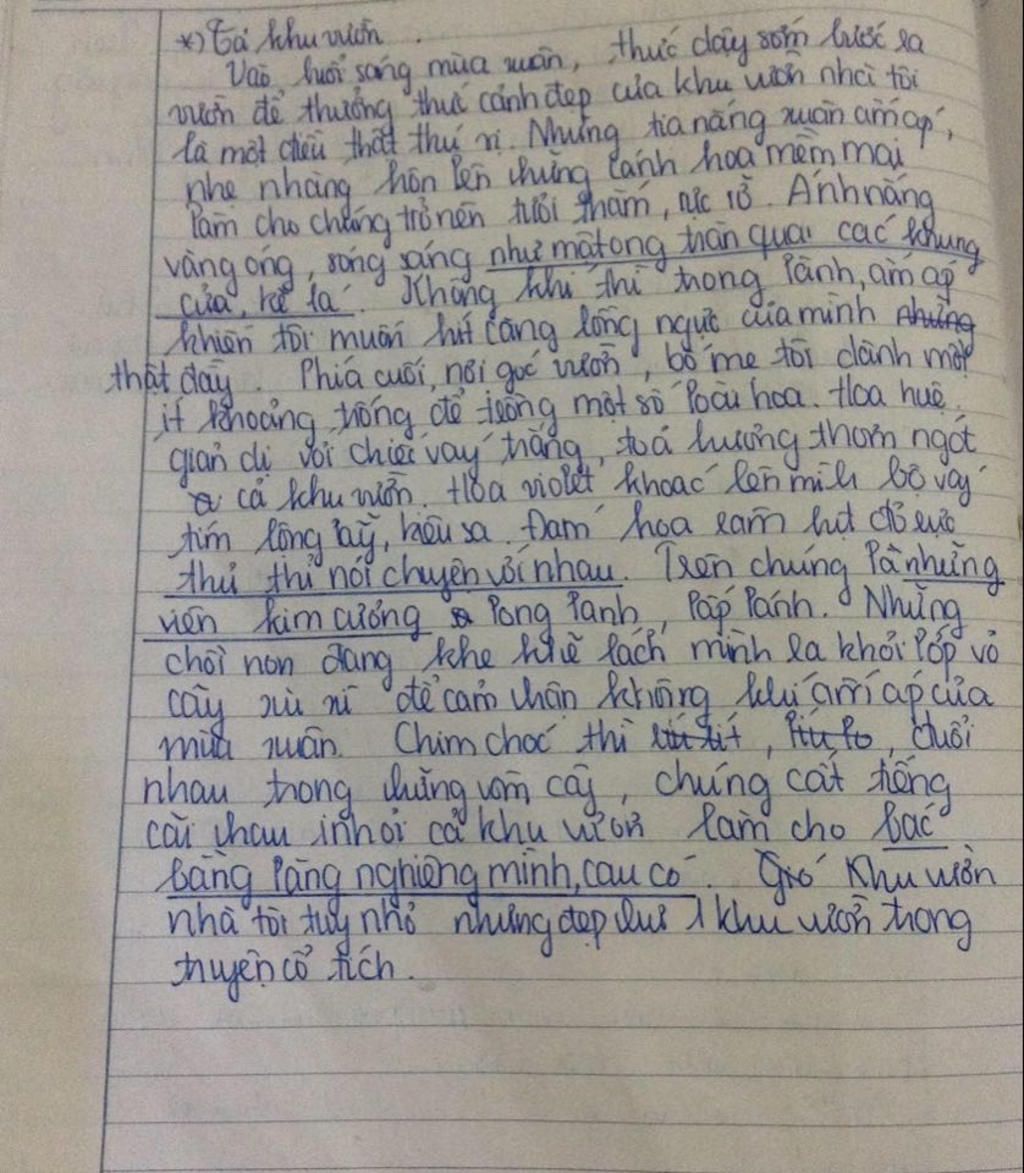 *) Tả khu vườn.
Vào buổi sáng mùa xuân, thức dậy sớm bước ra
vườn để thưởng thức cảnh đẹp của khu vườn nhà tôi
là một điều thật thú vị. Những tia nắng xuân ấm áp,
nhẹ nhàng hôn lên những cánh hoa mềm mại
làm cho chúng trở nên tươi thắm, rực rỡ. Ánh nắng
vàng óng, sóng sáng như mật ong tràn qua các khung
cửa, kẽ lá. Không khí thì trong lành, ấm áp
khiến tôi muốn hít căng lồng ngực của mình những
thật đầy. Phía cuối, nơi góc vườn, bố mẹ tôi dành một
ít khoảng trống để trồng một số loài hoa. Hoa huệ
giản dị với chiếc váy trắng, toả hương thơm ngát
cả khu vườn. Hoa violet khoác lên mình bộ váy
tím lộng lẫy, kiêu sa. Đám hoa râm bụt đỏ rực
thủ thỉ nói chuyện với nhau. Trên chúng là những
viên kim cương long lanh, lấp lánh. Những
chồi non đang khe khẽ lách mình ra khỏi lớp vỏ
cây xù xì để cảm nhận không khí ấm áp của
mùa xuân. Chim chóc thì ríu rít, líu lo, đuổi
nhau trong những vòm cây, chúng cất tiếng
cãi nhau inh ỏi cả khu vườn làm cho bác
bằng lăng nghiêng mình, cau có. Gió Khu vườn
nhà tôi tuy nhỏ nhưng đẹp như 1 khu vườn trong
truyện cổ tích.